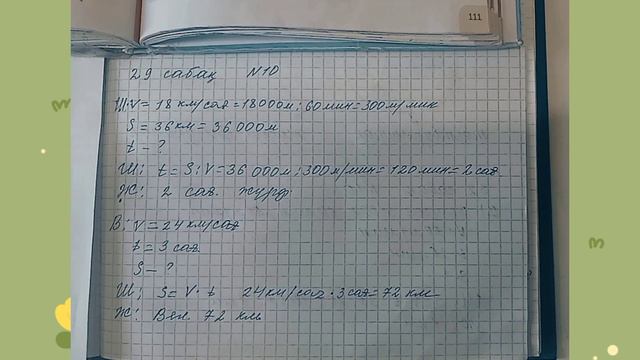 111
29 сабақ N10
Ш: V = 18 км/сағ = 18000м : 60 мин = 300 м/мин
S = 36 км = 36 000 м
t - ?
Ш: t = S : V = 36 000 м : 300 м/мин = 120 мин = 2 сағ
Ж: 2 сағ. жүрді
В: V = 24 км/сағ
t = 3 сағ
S - ?
Ш: S = V · t 24 км/сағ · 3 сағ = 72 км
Ж: Вел. 72 км